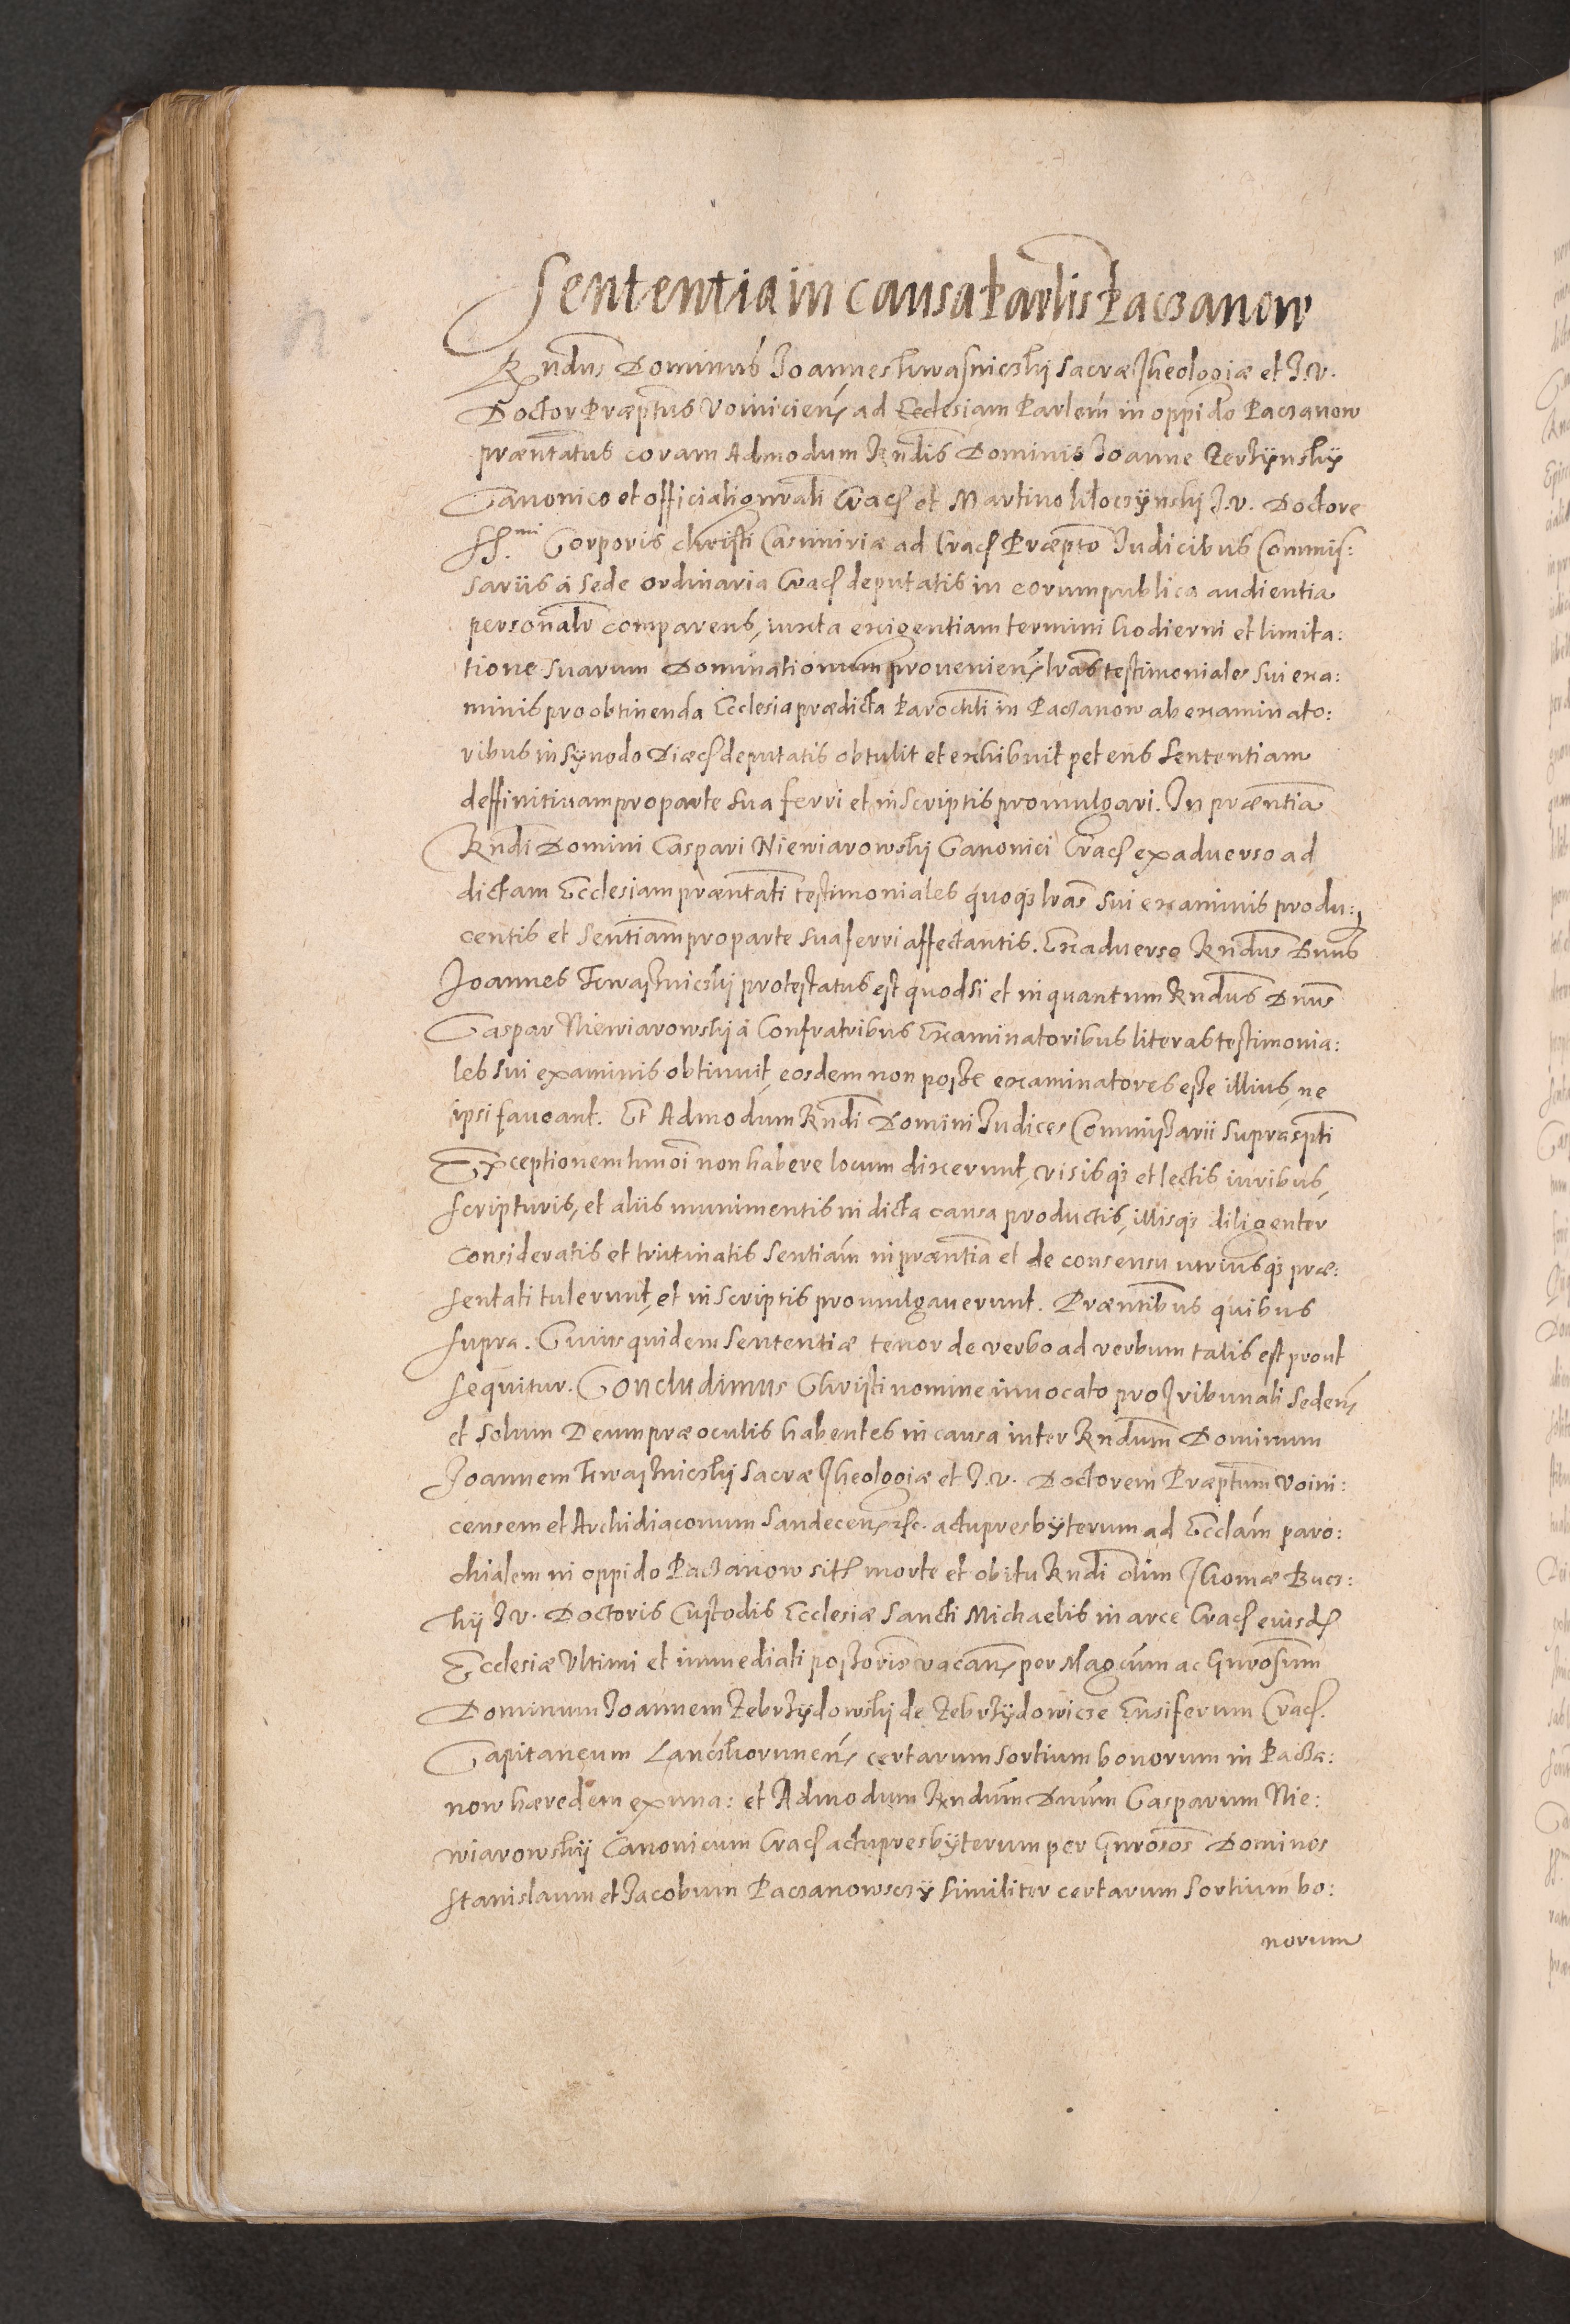 Sententia in causa Parlis Paczanow
Rndus Dominus Joannes Kwasniczkij Sacræ Theologiæ et J.V.
Doctor Præptus Voinicien ad Ecclesiam Parlem in oppido Paczanow
præntatus coram Admodum Rndis Dominis Joanne Zerzÿnskÿ
Canonico et officiali gnrali Crac et Martino Kłoczÿnskj J.V. Doctore
SS.mi Corporis christi Casimiriæ ad Crac Præpto Iudicibus Commis:
sariis á sede ordinaria Crac deputatis in eorum publica audientia
personalr comparens, iuxta exigentiam termini hodierni et limita:
tione suarum Dominationum prouenien lras testimoniales sui exa:
minis pro obtinenda Ecclesia prædicta Parochli in Paczanow ab examinato:
ribus in sÿnodo Diæc deputatis obtulit et exhibuit petens sententiam
deffinitiuam pro parte sua ferri et in scriptis promulgari. In præntia
Rndi Domini Caspari Niewiarowskij Canonici Crac ex aduerso ad
dictam Ecclesiam præntati testimoniales quoqz lras sui examinis produ:
centis et sentiam pro parte sua ferri affectantis. Ex aduerso Rndus Dnus
Joannes Kwaszniczkij protestatus est quod si et in quantum Rndus Dnus
Caspar Niewiarowskij á Confratribus Examinatoribus literas testimonia:
les sui examinis obtinuit, eosdem non posse examinatores esse illius, ne
ipsi faueant. Et Admodum Rndi Domini Iudices Commissarii suprascpti
Exceptionem hmoi non habere locum dixerunt, visisqz et lectis iuribus,
scripturis, et aliis munimentis in dicta causa productis, illisqz diligenter
consideratis et trutinatis sentiam in præntia et de consensu utriusqz præ:
sentati tulerunt, et in scriptis promulgauerunt. Præntibus quibus
supra. Cuius quidem sententiæ tenor de verbo ad verbum talis est prout
sequitur. Concludimus Christi nomine inuocato pro Tribunali seden
et solum Deum præ oculis habentes in causa inter Rndum Dominum
Joannem Kwaszniczkij Sacræ Theologiæ et J.V. Doctorem Præptum Voini:
censem et Archidiaconum Sandecen etc. actu presbÿterum ad Ecclam paro:
chialem in oppido Paczanow sit morte et obitu Rndi olim Thomæ Bucz:
kij J.V. Doctoris Custodis Ecclesiæ Sancti Michaelis in arce Crac eiusd
Ecclesiæ Vltimi et immediati possoris vacan per Magcum ac Gnrosum
Dominum Joannem Zebrzÿdowskij de Zebrzÿdowicze Ensiferum Crac.
Capitaneum Lanczkorunen certarum sortium bonorum in Pacza:
now hæredem ex una: et Admodum Rndum Dnum Casparum Nie:
wiarowskij Canonicum Crac actu presbÿterum per Gnrosos Dominos
Stanislaum et Jacobum Paczanowsczÿ similiter certarum sortium bo:
norum